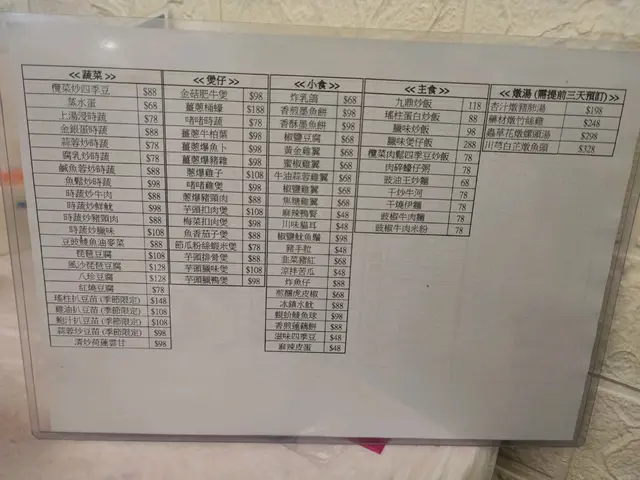 << 蔬菜 >>
欖菜炒四季豆 $88
蒸水蛋 $68
上湯浸時蔬 $78
金銀蛋時蔬 $88
蒜蓉炒時蔬 $78
腐乳炒時蔬 $78
鹹魚蓉炒時蔬 $88
魚鬆炒時蔬 $98
時蔬炒牛肉 $88
時蔬炒鮮魷 $98
時蔬炒豬頸肉 $88
時蔬炒臘味 $108
豆豉鯪魚油麥菜 $88
琵琶豆腐 $108
風沙琵琶豆腐 $128
八珍豆腐 $128
紅燒豆腐 $78
瑤柱扒豆苗 (季節限定) $148
雞油扒豆苗 (季節限定) $108
鮑汁扒豆苗 (季節限定) $108
蒜蓉炒豆苗 (季節限定) $98
清炒荷蓮雲甘 $98
<< 煲仔 >>
金菇肥牛煲 $98
薑蔥桶蠔 $188
啫啫時蔬 $78
薑蔥牛柏葉 $98
薑蔥爆魚卜 $98
薑蔥爆豬雜 $98
蔥爆雞子 $108
啫啫雞煲 $98
蔥爆豬頸肉 $88
芋頭扣肉煲 $108
梅菜扣肉煲 $98
魚香茄子煲 $88
節瓜粉絲蝦米煲 $78
芋頭排骨煲 $88
芋頭臘味煲 $108
芋頭臘鴨煲 $98
<< 小食 >>
炸乳鴿 $68
香煎墨魚餅 $98
香酥墨魚餅 $98
椒鹽豆腐 $68
黃金雞翼 $68
蜜椒雞翼 $68
牛油蒜蓉雞翼 $68
椒鹽雞翼 $68
焦糖雞翼 $68
麻辣鴨腎 $48
川味貓耳 $48
椒鹽魷魚鬚 $98
豬手粒 $48
韭菜豬紅 $68
涼拌苦瓜 $48
炸魚仔 $88
煎釀虎皮椒 $68
冰鎮水魷 $88
蜆蚧鯪魚球 $98
香煎蓮藕餅 $88
滋味四季豆 $48
麻辣皮蛋 $48
<< 主食 >>
九鼎炒飯 118
瑤柱蛋白炒飯 88
臘味炒飯 98
臘味煲仔飯 288
欖菜肉鬆四季豆炒飯 78
肉碎蠔仔粥 78
豉油王炒麵 68
干炒牛河 78
干燒伊麵 78
豉椒牛肉麵 78
豉椒牛肉米粉 78
<< 燉湯 (需提前三天預訂) >>
杏汁燉豬肺湯 $198
藥材燉竹絲雞 $248
蟲草花燉螺頭湯 $298
川芎白芷燉魚頭 $328